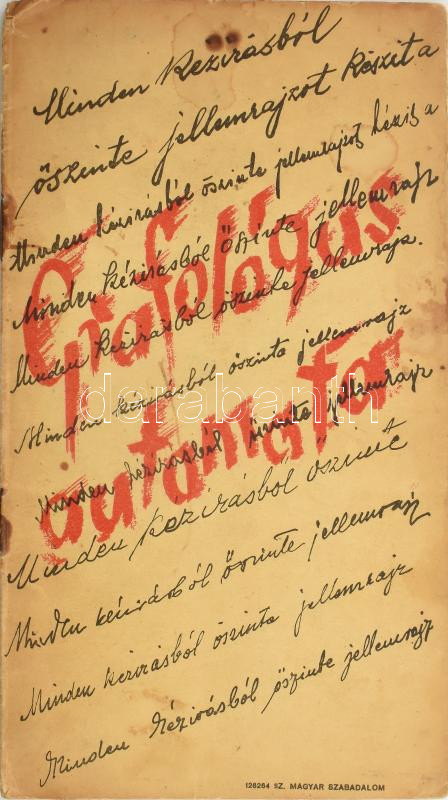 Minden kézírásból
őszinte jellemrajzot készít a
Minden kézírásból őszinte jellemrajzot készít a
Grafológus
Minden kézírásból őszinte jellemrajz
Minden kézírásból őszinte jellemrajz.
Minden kézírásból őszinte jellemrajz
darabanth
automata
Minden kézírásból őszinte jellemrajz
Minden kézírásból őszinte
Minden kézírásból őszinte jellemrajz
Minden kézírásból őszinte jellemrajz
Minden kézírásból őszinte jellemrajz
126264 SZ. MAGYAR SZABADALOM